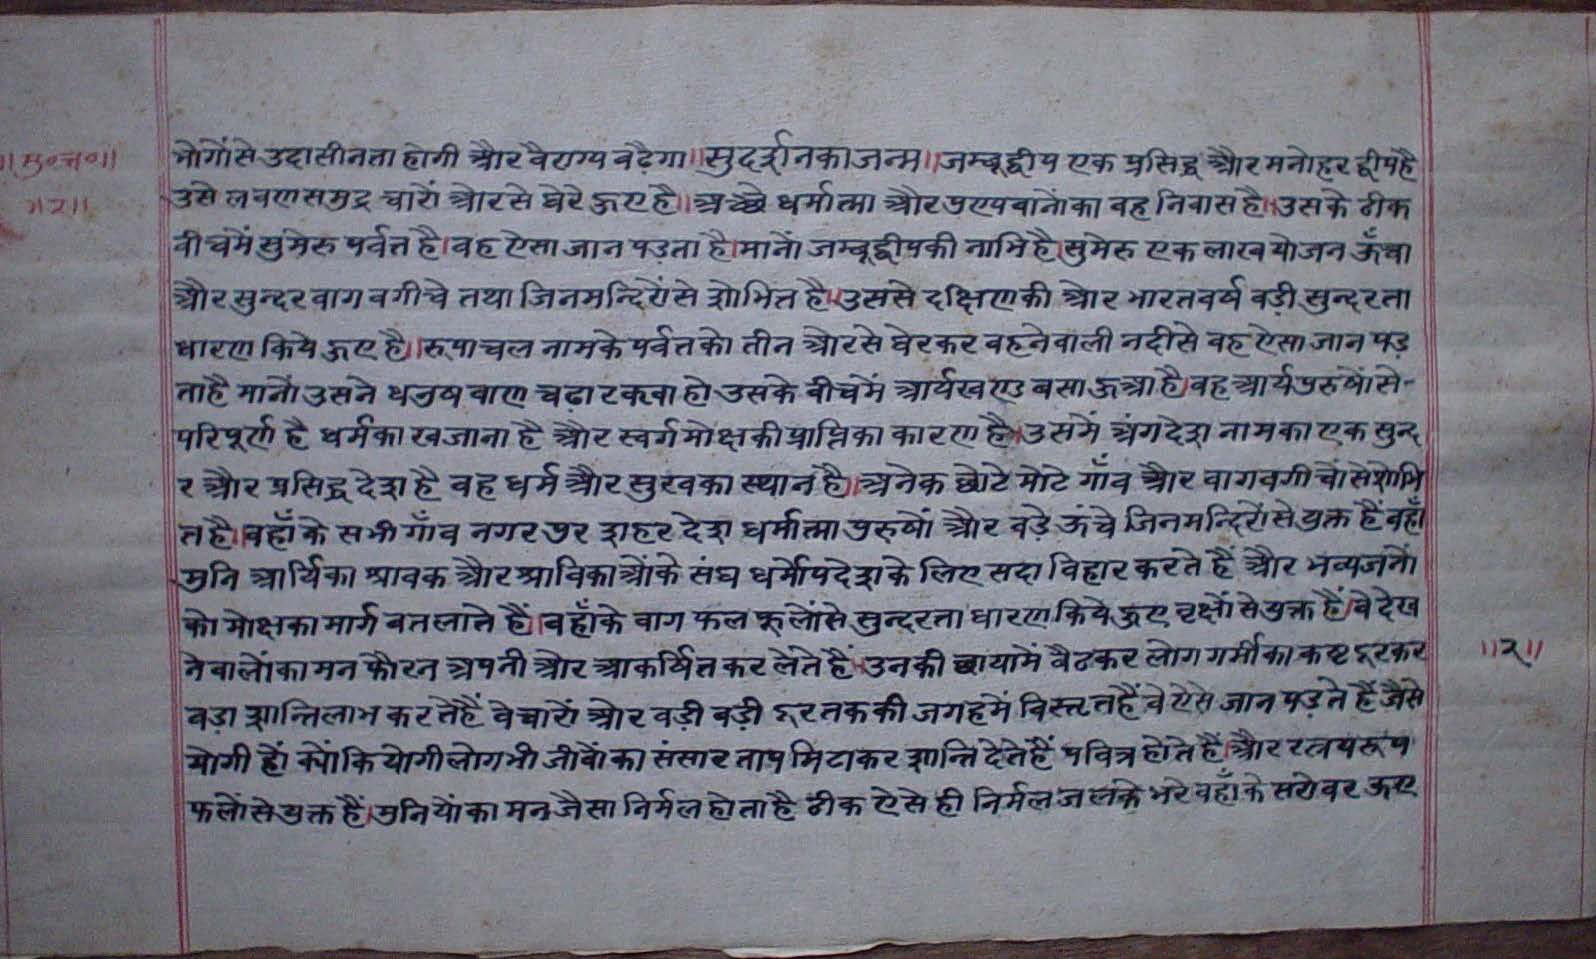 ॥सु०च०॥
॥२॥
भोगोंसे उदासीनता होगी और वैराग्य बढ़ेगा॥सुदर्शनका जन्म॥जम्बूद्वीप एक प्रसिद्ध और मनोहर द्वीप है
उसे लवणसमुद्र चारों औरसे घेरे हुए है॥अच्छे धर्मात्मा और पुण्यवानोंका वह निवास है॥उसके ठीक
बीचमें सुमेरु पर्वत है।वह ऐसा जान पड़ता है।मानों जम्बूद्वीपकी नाभि है।सुमेरु एक लाख योजन ऊँचा
और सुन्दर बाग बगीचे तथा जिनमन्दिरोंसे शोभित है॥उससे दक्षिणकी और भारतवर्ष बड़ी सुन्दरता
धारण किये हुए है॥रूपाचल नामके पर्वतको तीन औरसे घेरकर बहनेवाली नदीसे वह ऐसा जान पड़
ताहै मानों उसने धनुष बाण चढ़ा रक्खा हो उसके बीचमें आर्यखण्ड बसा हुआ है।वह आर्यपुरुषोंसे-
परिपूर्ण है धर्मका खजाना है और स्वर्गमोक्षकी प्राप्तिका कारण है॥उसमें अंगदेश नामका एक सुन्द
र और प्रसिद्ध देश है वह धर्म और सुखका स्थान है॥अनेक छोटे मोटे गाँव और बागबगीचोंसे शोभि
त है।वहाँ के सभी गाँव नगर पुर शहर देश धर्मात्मा पुरुषों और बड़े ऊंचे जिनमन्दिरोंसे युक्त हैं वहाँ
मुनि आर्यिका श्रावक और श्राविकाओंके संघ धर्मोपदेशके लिए सदा विहार करते हैं और भव्यजनों
को मोक्षका मार्ग बतलाते हैं।वहाँके बाग फल फूलोंसे सुन्दरता धारण किये हुए वृक्षों से युक्त हैं।वे देख
नेवालोंका मन फौरन अपनी और आकर्षित कर लेते हैं॥उनकी छायामें बैठकर लोग गर्मीका कष्ट दूरकर
बड़ा शान्तिलाभ करतेहैं वे चारों और बड़ी बड़ी दूर तक की जगहमें विस्तृत हैं वे ऐसे जान पड़ते हैं जैसे
योगी हों क्योंकि योगीलोगभी जीवोंका संसार ताप मिटाकर शान्ति देतेहैं पवित्र होते हैं।और रत्नयरूप
फलोंसे युक्त हैं।मुनियोंका मन जैसा निर्मल होता है ठीक ऐसे ही निर्मल जलके भरे वहाँके सरोवर हुए
॥२॥